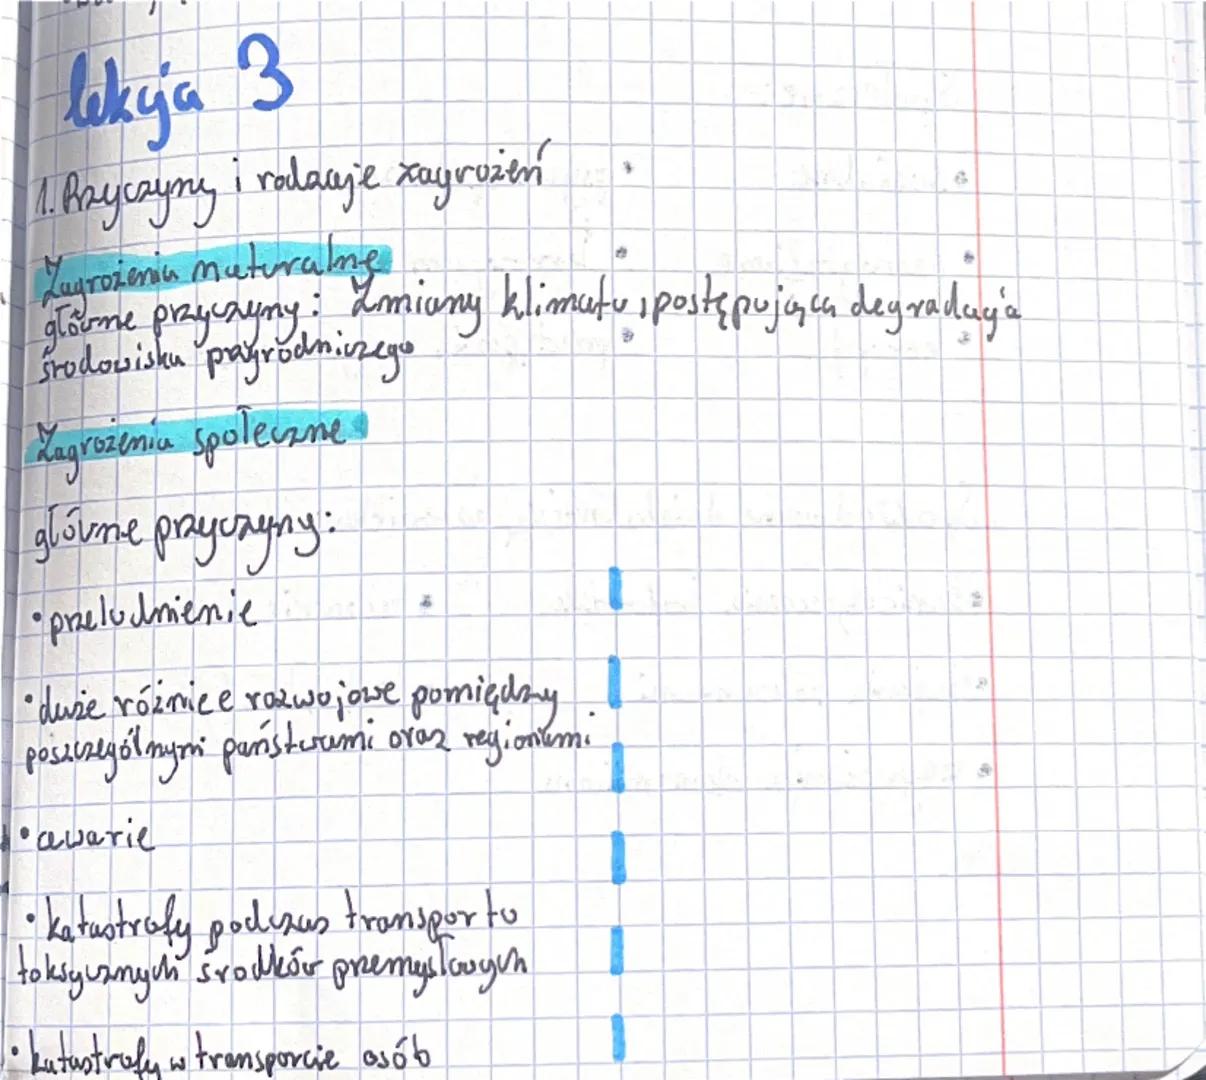 lekcja 3
1. Przyczyny i rodzaje zagrożeń
Zagrożenia naturalne
główne przyczyny: Zmiany klimatu, postępująca degradacja
środowiska przyrodniczego
Zagrożenia społeczne
główne przyczyny:
• przeludnienie
• duże różnice rozwojowe pomiędzy
poszczególnymi państwami oraz regionami
• awarie
• katastrofy podczas transportu
toksycznych środków przemysłowych
• katastrofy w transporcie osób